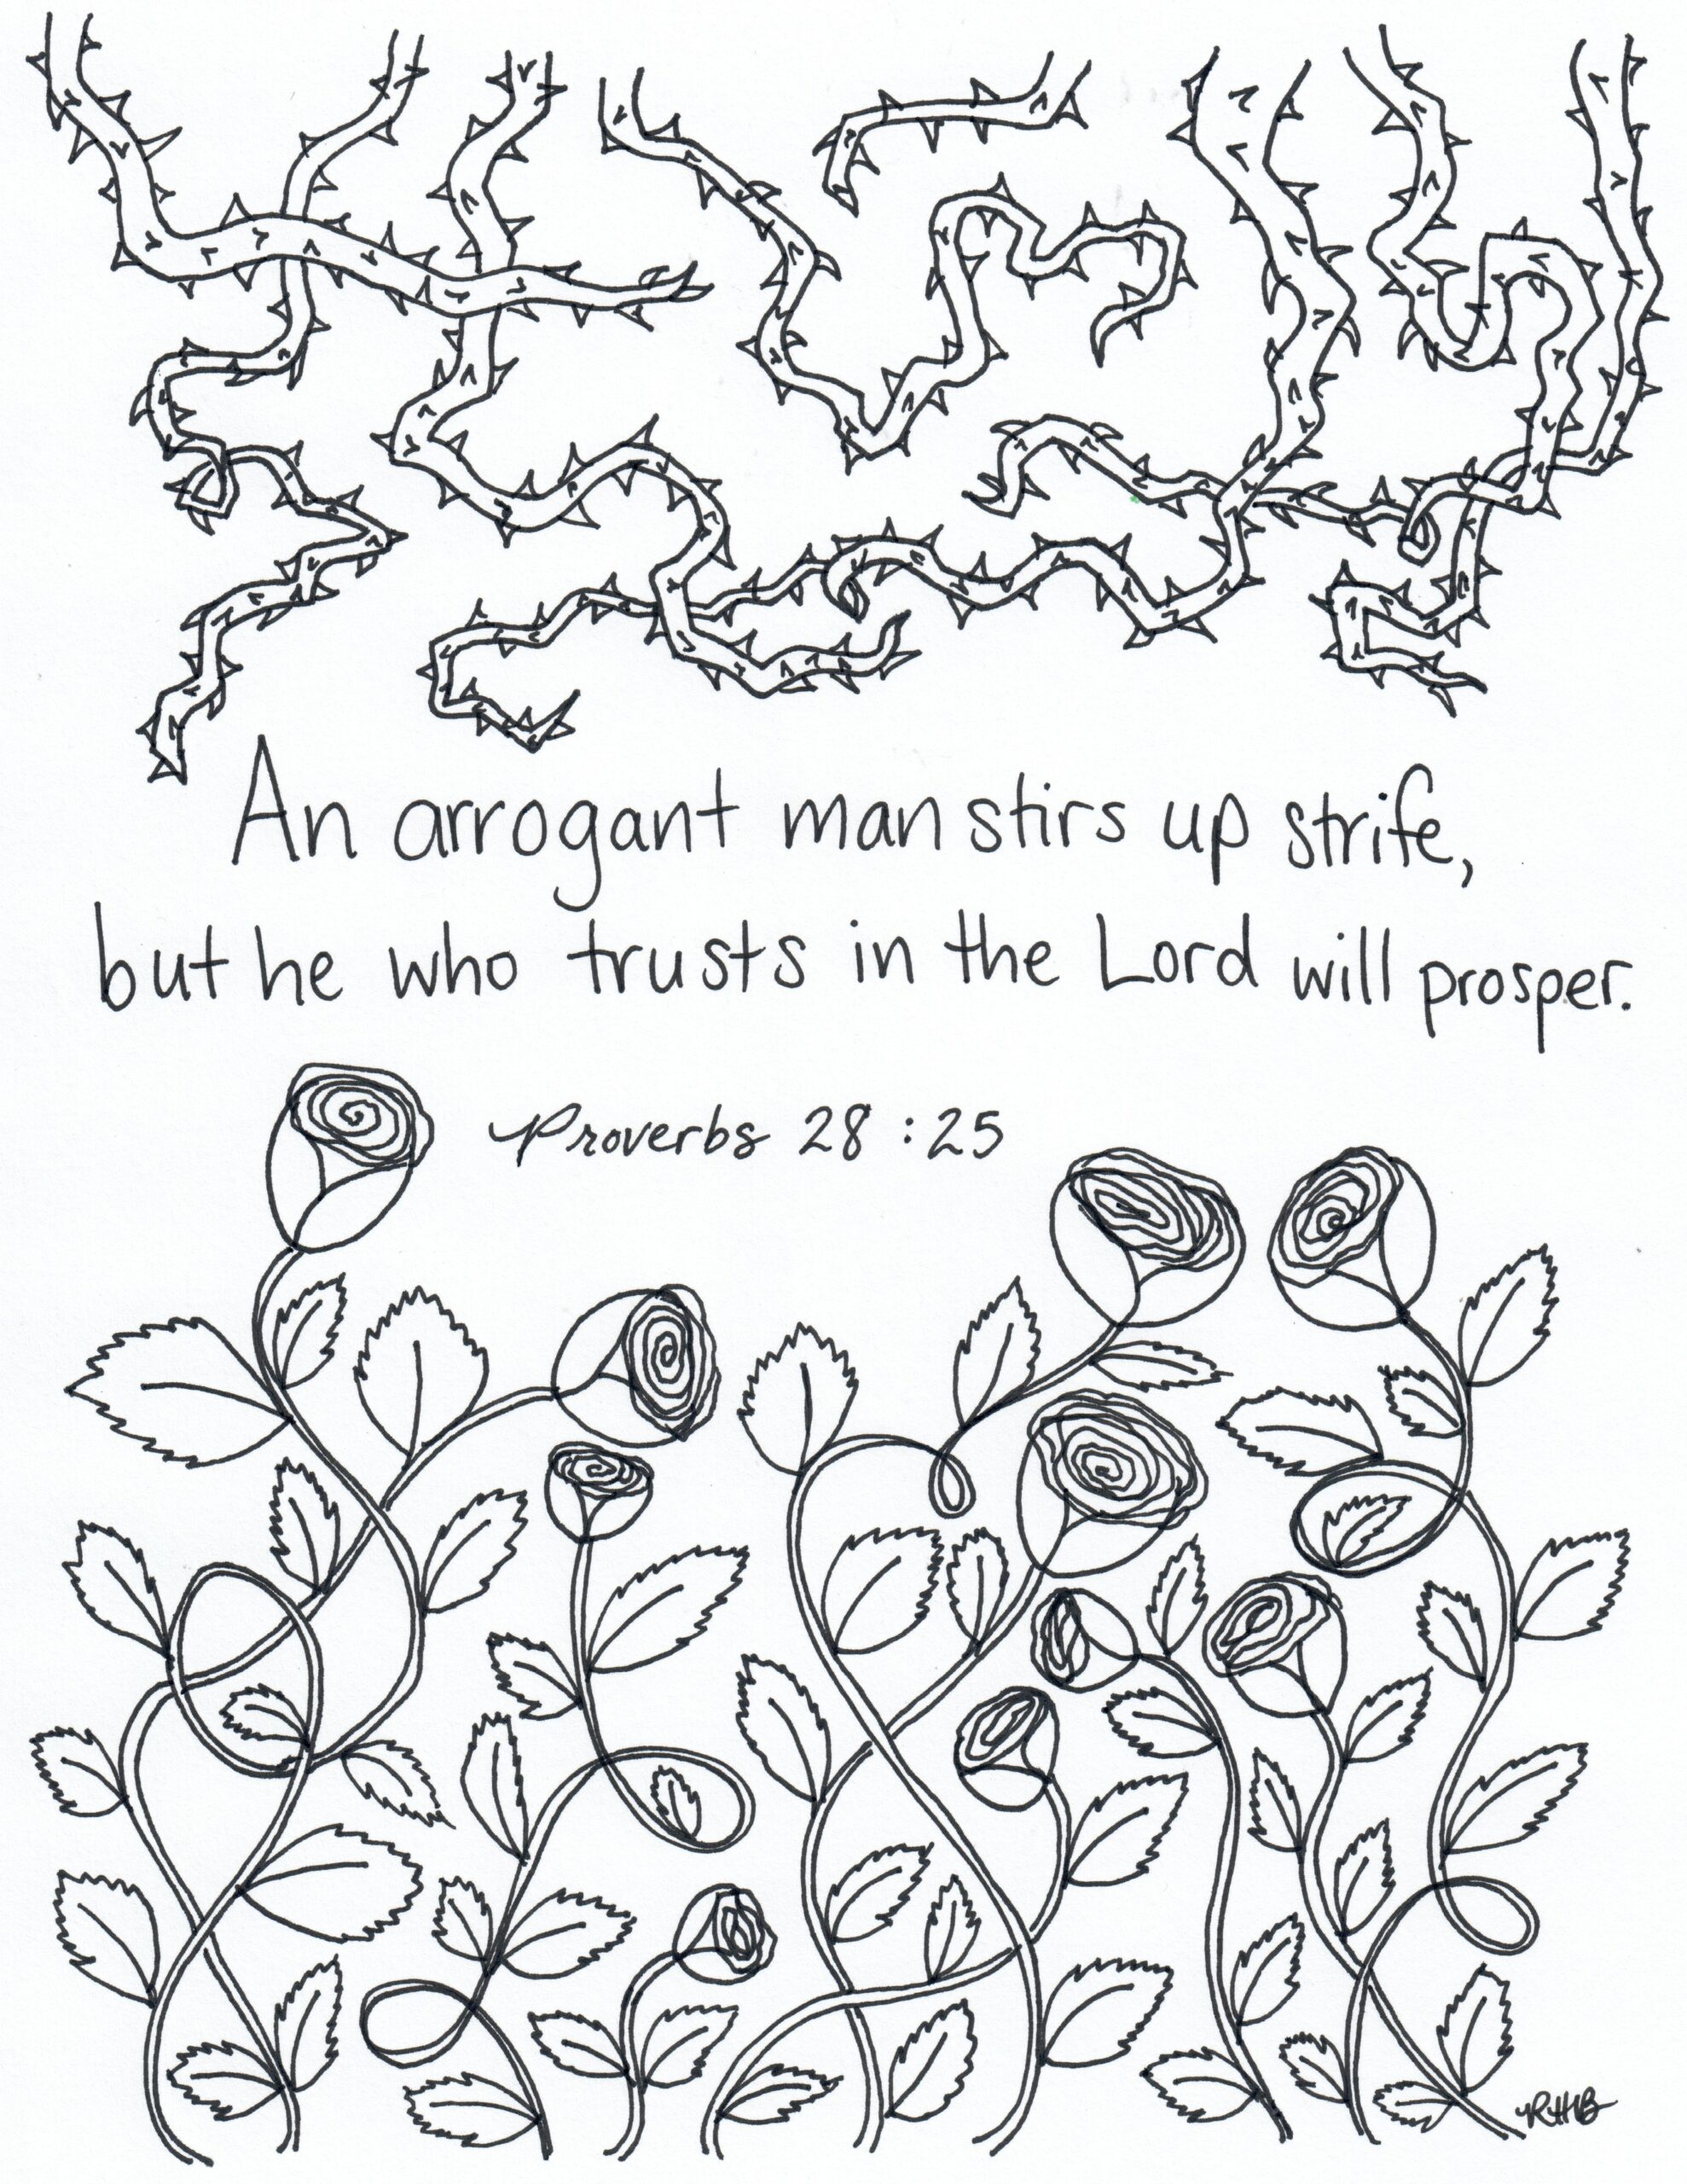 An arrogant man stirs up strife,
but he who trusts in the Lord will prosper.
Proverbs 28:25
RHB